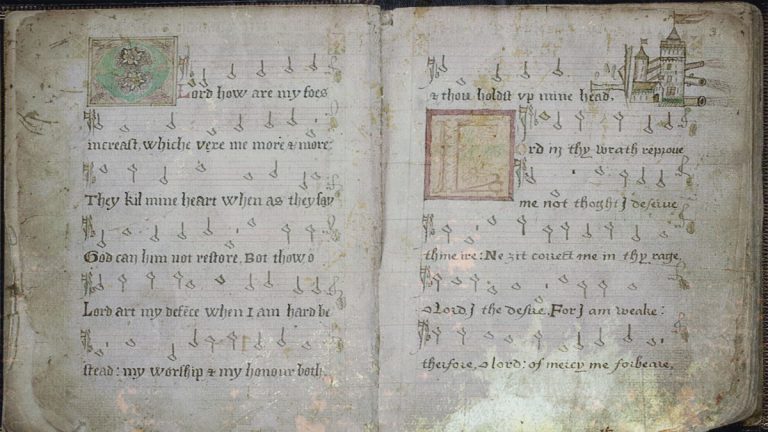 Lord how are my foes
increast, whiche vexe me more & more:
They kil mine heart when as they say
God can him not restore. Bot thow o
Lord art my defēce when I am hard be
stead: my worship & my honour both.
3
& thou holdst vp mine head.
Lord in thy wrath reproue
me not thoght J deserue
thine ire: Ne zit correct me in thy rage,
o Lord J the desire. For J am weake:
therfore, o lord: of mercy me forbeare,